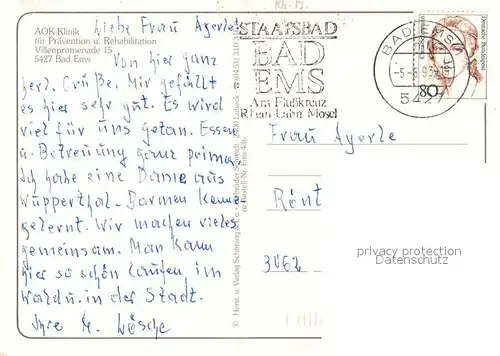 AOK-Klinik
für Prävention u. Rehabilitation
Villenpromenade 15
5427 Bad Ems
Liebe Frau Agerle
Von hier ganz
herz. Grüße. Mir gefällt
es hier sehr gut. Es wird
viel für uns getan. Essen
u. Betreuung ganz prima.
Ich habe eine Dame aus
Wuppertal-Barmen kenne
gelernt. Wir machen vieles
gemeinsam. Man kann
hier so schön laufen, im
Wald u. in der Stadt.
Ihre M. Lösche
© Horst u. Verlag Schöning & Co · Gebrüder Schmidt, 2400 Lübeck
STAATSBAD
BAD
EMS
Am Flußkreuz
Rhein-Lahn-Mosel
BAD EMS
5427
80
Deutsche Bundespost
Frau Agerle
Rönt
3062
privacy protection
Datenschutz